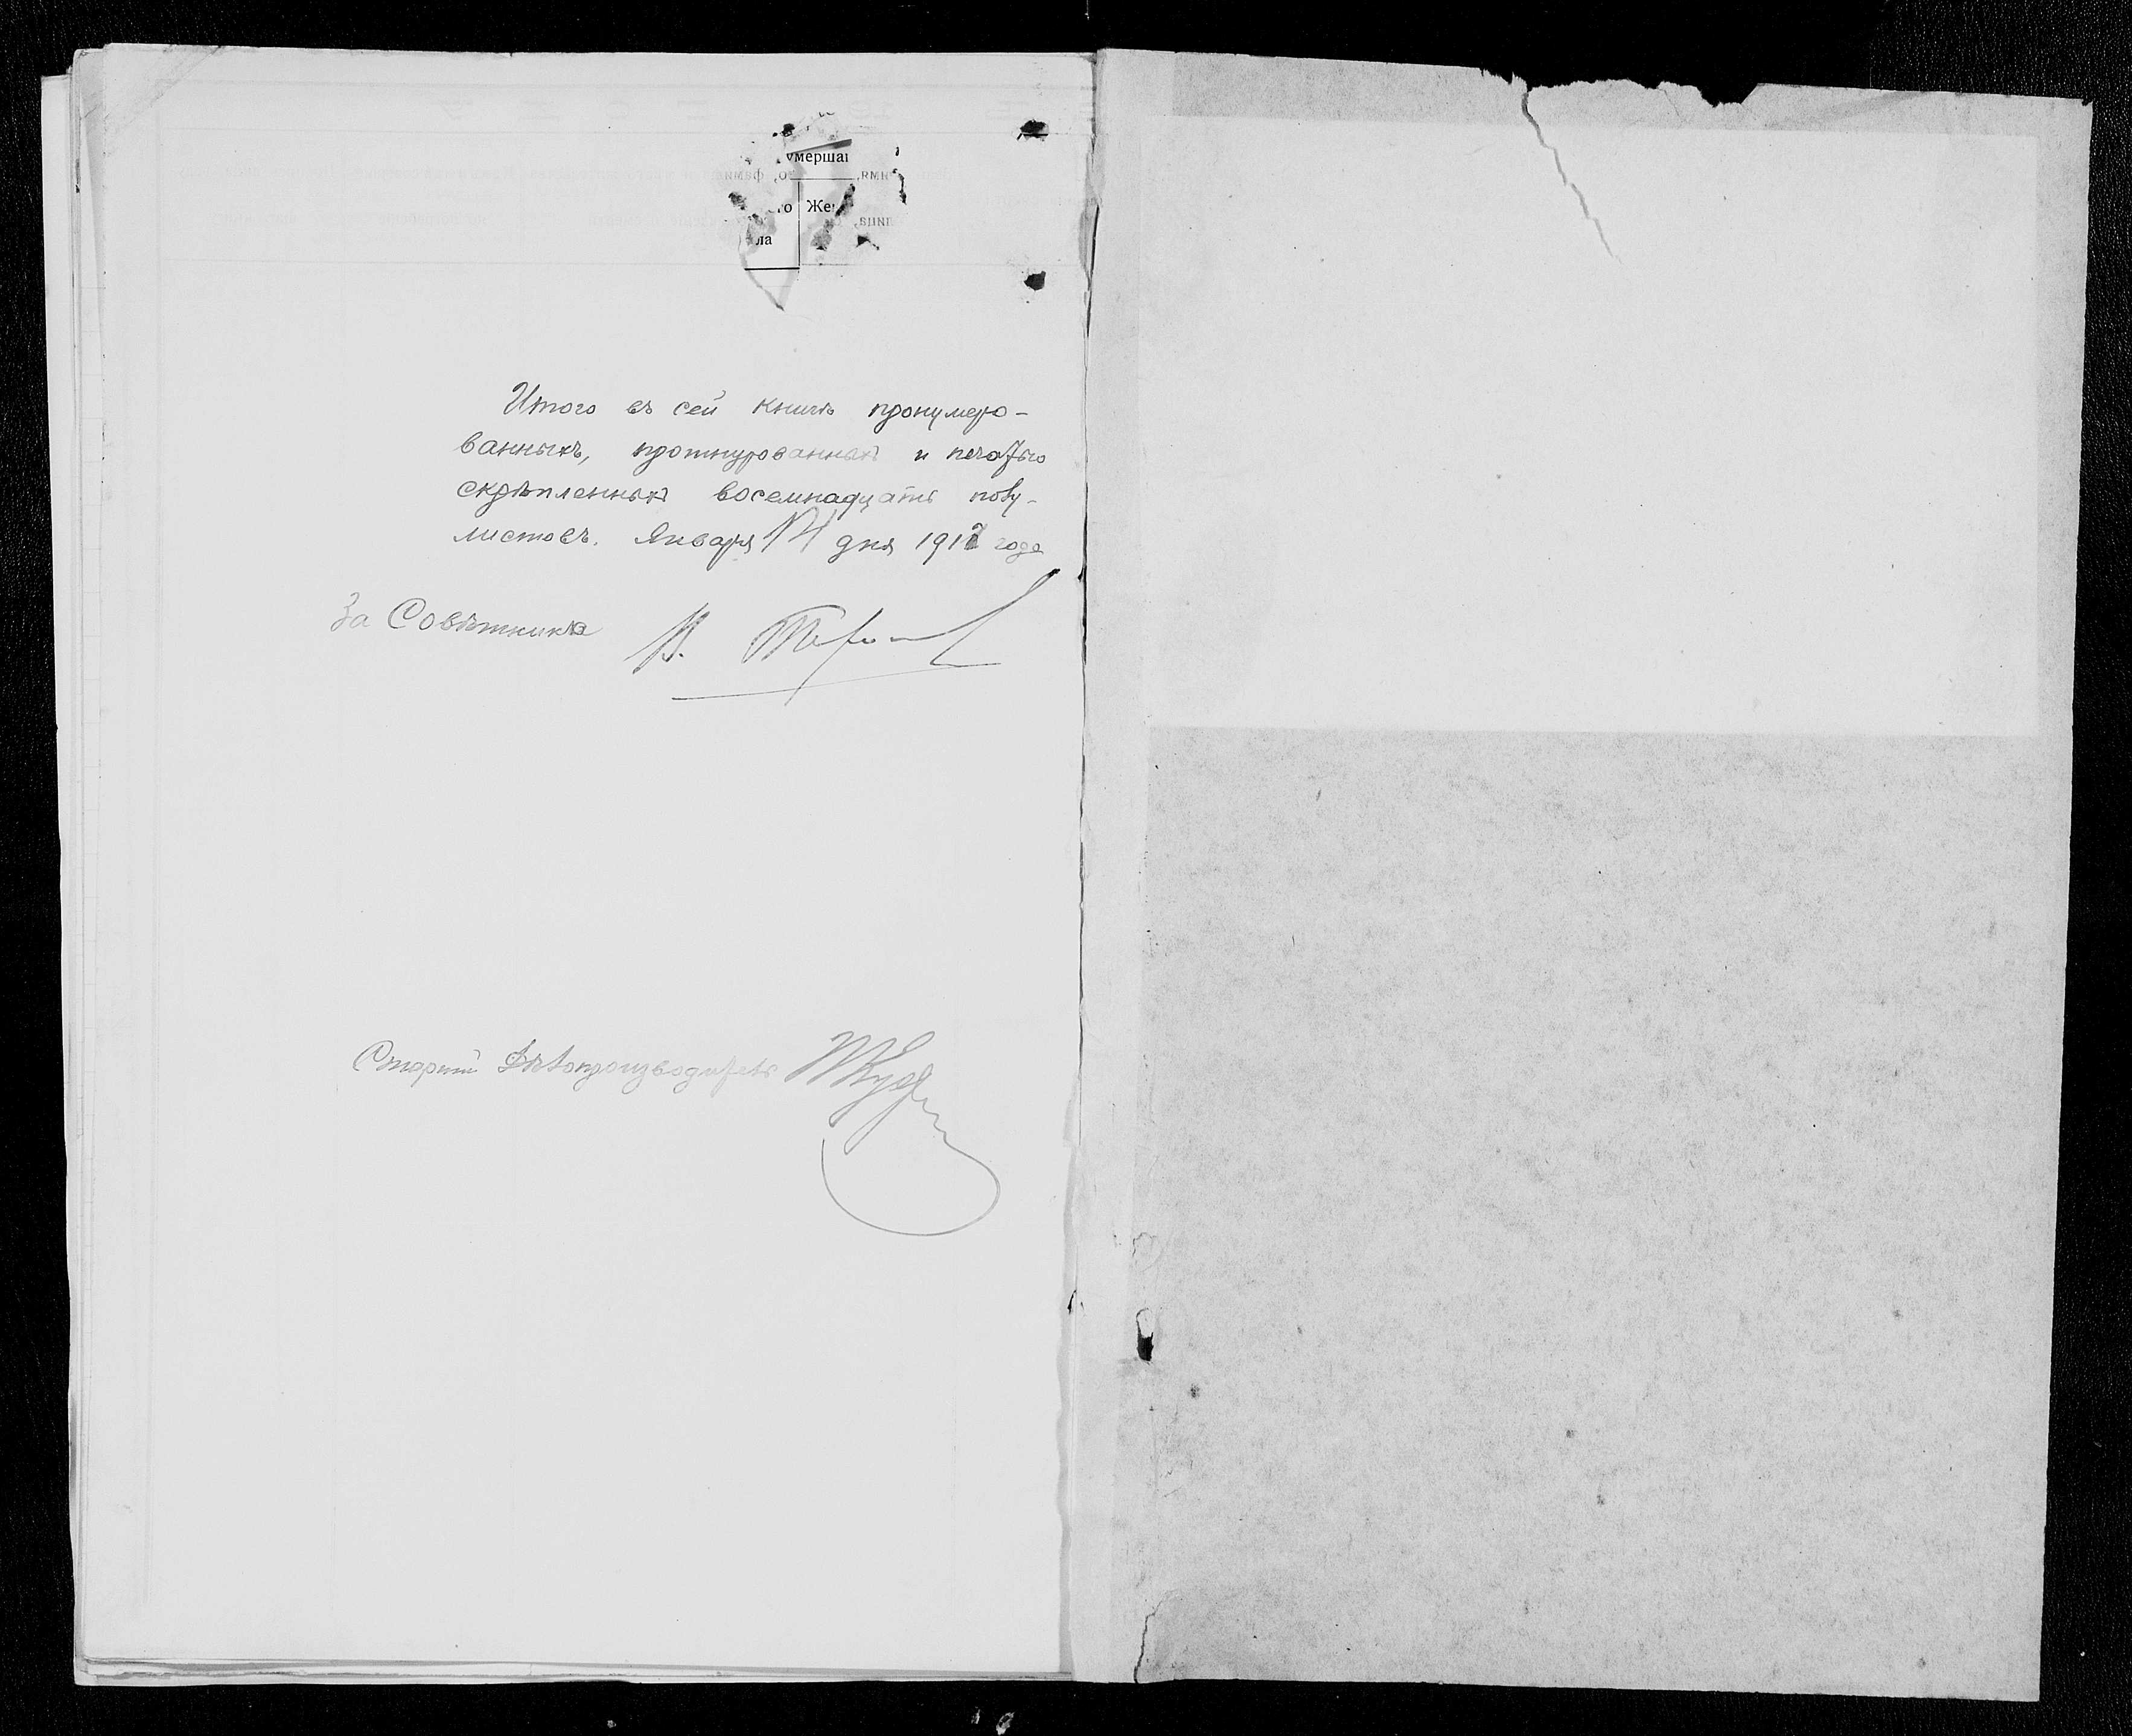 умершаг
го Же
ла
Итого въ сей книгѣ пронумеро-
ванныхъ, прошнурованныхъ и печатью
скрѣпленныхъ восемнадцать полу-
листовъ. Января 14 дня 1917 года
За Совѣтника В.
Старшій Дѣлопроизводитель